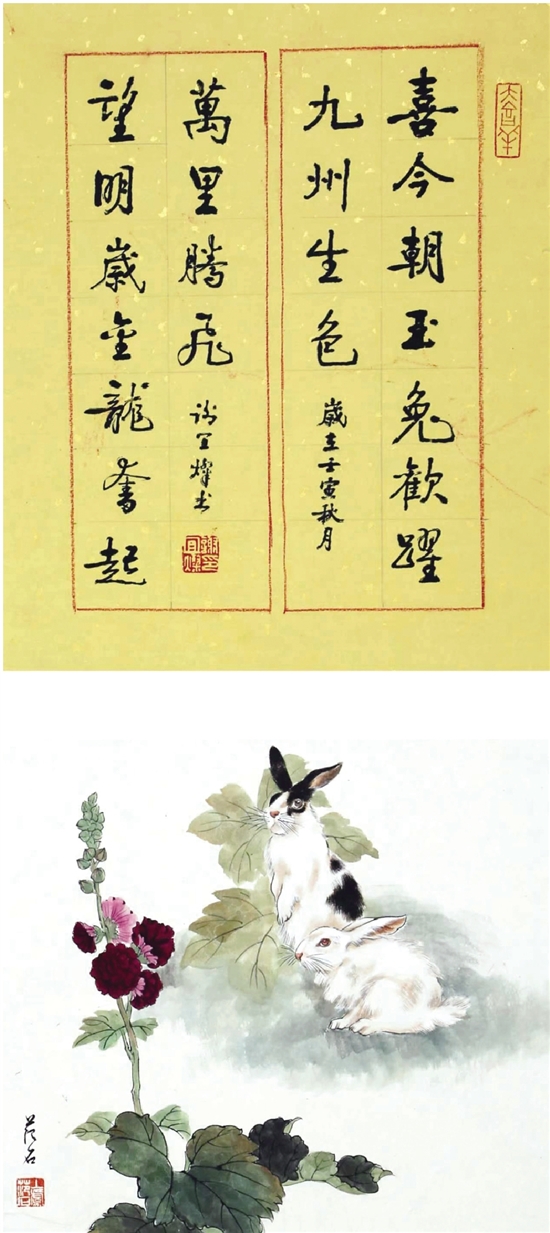 喜今朝玉兔歡躍
九州生色
歲在壬寅秋月
萬里騰飛
望明歲金龍奮起